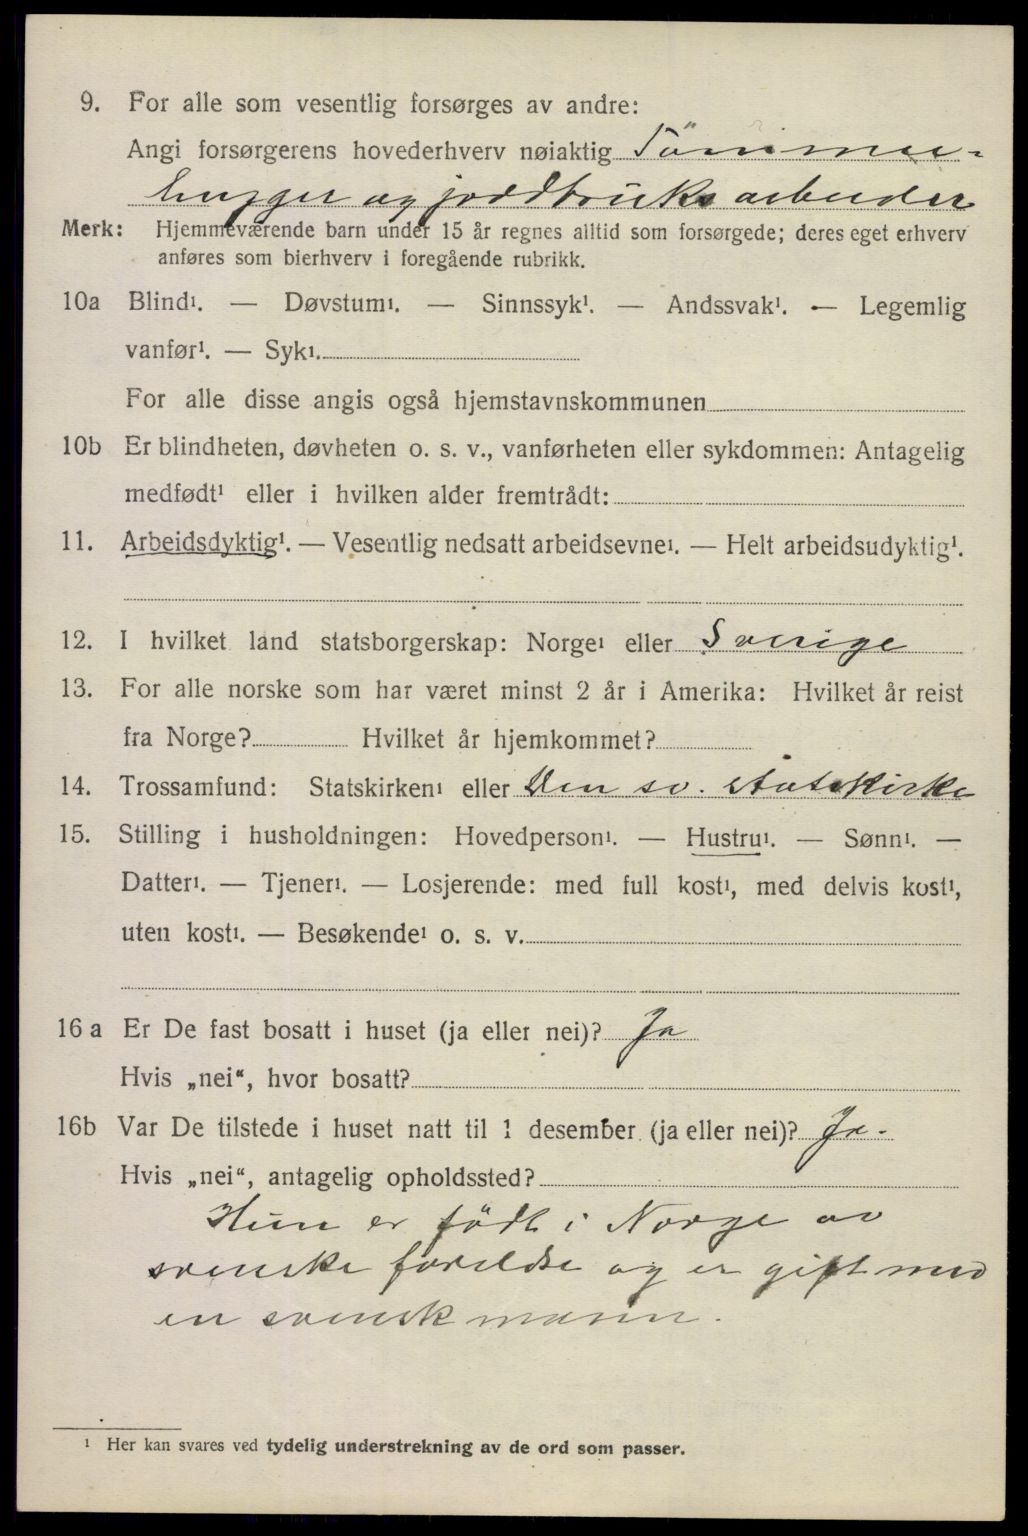 9. For alle som vesentlig forsørges av andre:
Angi forsørgerens hovederhverv nøiaktig Tömmer-
hugger og jorddbruksarbeider
Merk: Hjemmeværende barn under 15 år regnes alltid som forsørgede; deres eget erhverv
anføres som bierhverv i foregående rubrikk.
10a Blind¹. — Døvstum¹. — Sinnssyk¹. — Andssvak¹. — Legemlig
vanfør¹. — Syk¹.
For alle disse angis også hjemstavnskommunen
10b Er blindheten, døvheten o. s. v., vanførheten eller sykdommen: Antagelig
medfødt¹ eller i hvilken alder fremtrådt:
11. Arbeidsdyktig¹. — Vesentlig nedsatt arbeidsevne¹. — Helt arbeidsudyktig¹.
12. I hvilket land statsborgerskap: Norge¹ eller Sverige
13. For alle norske som har været minst 2 år i Amerika: Hvilket år reist
fra Norge? Hvilket år hjemkommet?
14. Trossamfund: Statskirken¹ eller Den sv. statskirke
15. Stilling i husholdningen: Hovedperson¹. — Hustru¹. — Sønn¹. —
Datter¹. — Tjener¹. — Losjerende: med full kost¹, med delvis kost¹,
uten kost¹. — Besøkende¹ o. s. v.
16 a Er De fast bosatt i huset (ja eller nei)? Ja
Hvis „nei“, hvor bosatt?
16b Var De tilstede i huset natt til 1 desember (ja eller nei)? Ja.
Hvis „nei“, antagelig opholdssted?
Hun er födt i Norge av
svenske foreldre og er gift med
en svensk mann.
¹ Her kan svares ved tydelig understrekning av de ord som passer.